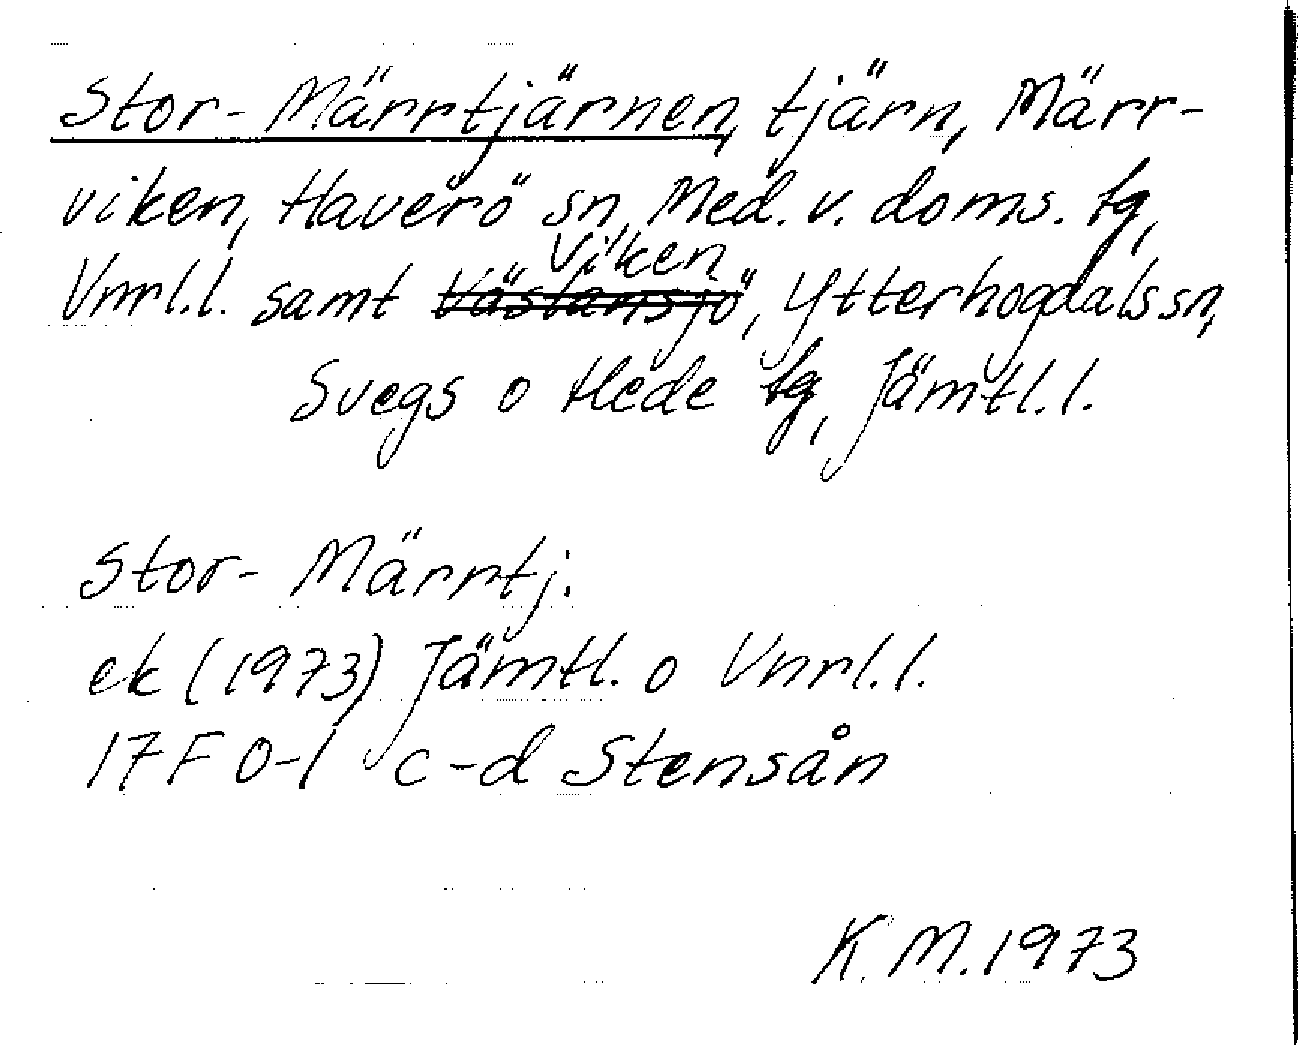 Stor-Märrtjärnen, tjärn, Märr-
viken, Haverö sn, Med. v. doms. tg,
Viken
Vnrl.l. samt Västansjö, Ytterhogdals sn,
Svegs o Hede tg, Jämtl.l.
Stor-Märrtj.
ek (1973) Jämtl. o Vnrl.l.
17F 0-1 c-d Stensån
K.M. 1973